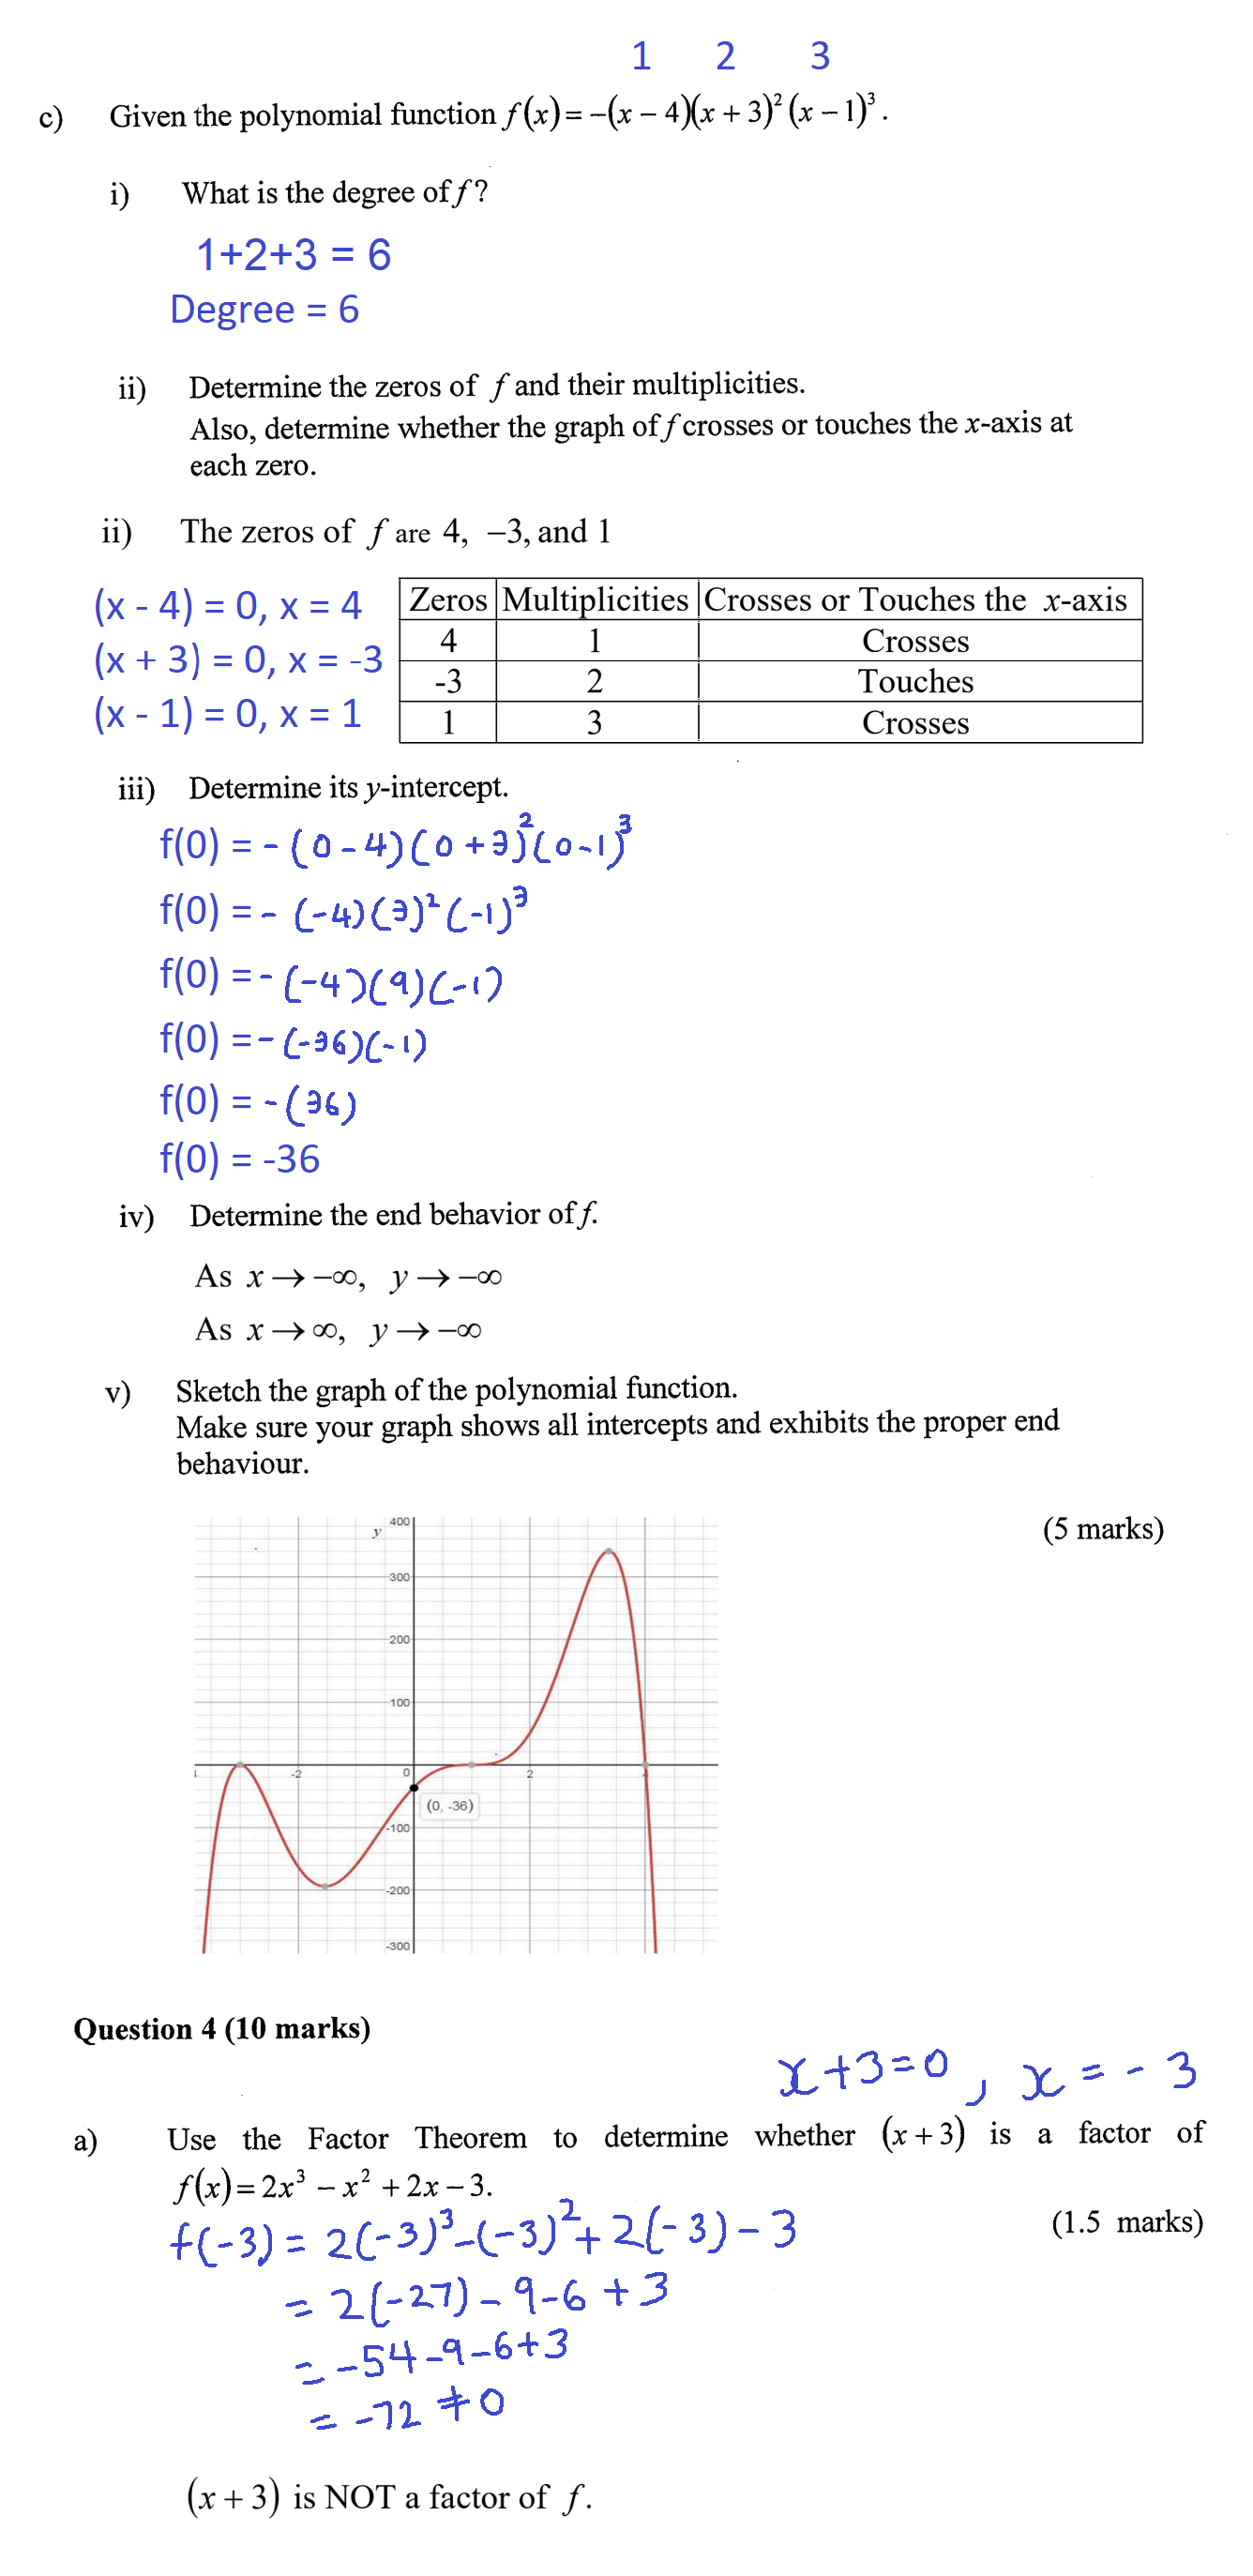 1 2 3
c) Given the polynomial function f(x)= −(x − 4)(x + 3)² (x − 1)³ .
i) What is the degree of f ?
1+2+3 = 6
Degree = 6
ii) Determine the zeros of f and their multiplicities.
Also, determine whether the graph of f crosses or touches the x-axis at
each zero.
ii) The zeros of f are 4, −3, and 1
(x - 4) = 0, x = 4
(x + 3) = 0, x = -3
(x - 1) = 0, x = 1
Zeros Multiplicities Crosses or Touches the x-axis
4 1 Crosses
-3 2 Touches
1 3 Crosses
iii) Determine its y-intercept.
f(0) = - (0 - 4)(0 + 3)²(0 - 1)³
f(0) = - (-4)(3)²(-1)³
f(0) = - (-4)(9)(-1)
f(0) = - (-36)(-1)
f(0) = - (36)
f(0) = -36
iv) Determine the end behavior of f.
As x → −∞, y → −∞
As x → ∞, y → −∞
v) Sketch the graph of the polynomial function.
Make sure your graph shows all intercepts and exhibits the proper end
behaviour.
(5 marks)
y
400
300
200
100
-2 0 2 4
(0, -36)
-100
-200
-300
Question 4 (10 marks)
x+3=0, x = -3
a) Use the Factor Theorem to determine whether (x + 3) is a factor of
f(x)= 2x³ − x² + 2x − 3.
(1.5 marks)
f(-3) = 2(-3)³-(-3)²+ 2(-3) - 3
= 2(-27) - 9 - 6 + 3
= -54 - 9 - 6 + 3
= -72 ≠ 0
(x + 3) is NOT a factor of f.